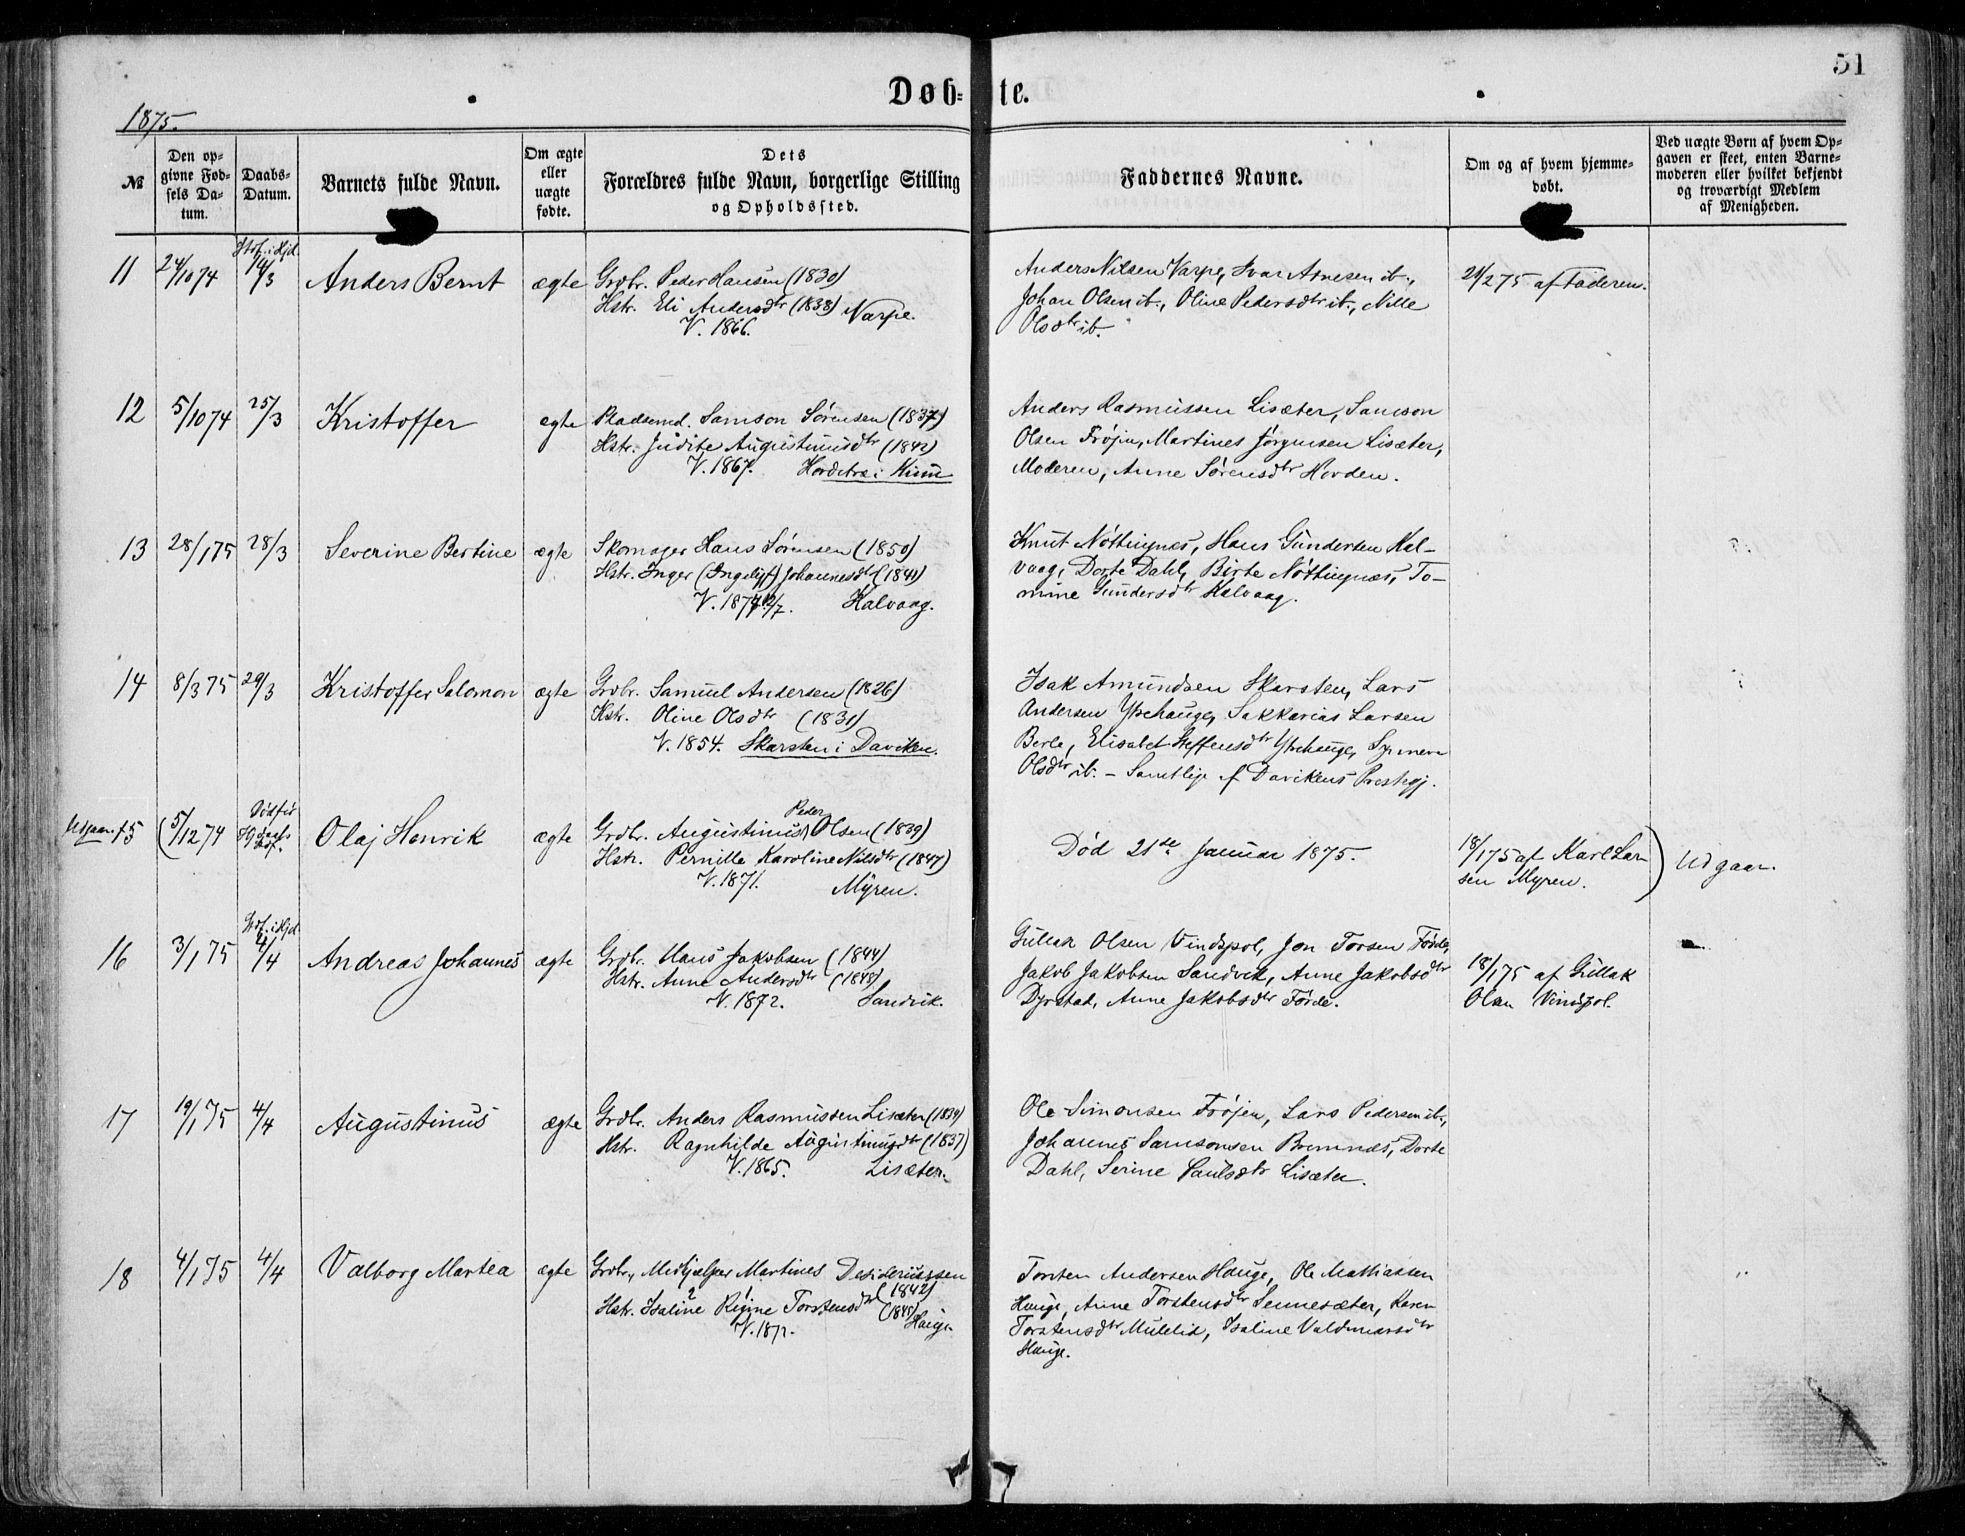 51
Døb-
te.
1875.
№
Den op-
givne Fød-
sels Da-
tum.
Daabs-
Datum.
Barnets fulde Navn.
Om ægte
eller
uægte
fødte.
Dets
Forældres fulde Navn, borgerlige Stilling
og Opholdssted.
Faddernes Navne.
Om og af hvem hjemme-
døbt.
Ved uægte Børn af hvem Op-
gaven er skeet, enten Barne-
moderen eller hvilket bekjendt
og troværdigt Medlem
af Menigheden.
11
24/10 74
14/3
Anders Bernt
ægte
Grdbr. Peder Hansen (1830)
Hstr. Eli Andersdtr (1838) Varpe.
V. 1866.
Anders Nilsen Varpe, Ivar Arnesen ib.,
Johan Olsen ib., Oline Pedersdtr ib., Nille
Olsdtr ib.
21/2 75 af Faderen.
12
5/10 74
25/3
Kristoffer
ægte
Pladsemd. Samson Sørensen (1837)
Hstr. Judite Augustinusdtr (1842)
V. 1867. i Kinn
Anders Rasmussen Lisæter, Samson
Olsen Frøjen, Martines Jørgensen Lisæter,
Moderen, Anne Sørensdtr Hovden.
13
28/1 75
28/3
Severine Bertine
ægte
Skomager Hans Sørensen (1850)
Hstr. Inger (Ingelif) Johannesdtr (1841)
V. 1874 12/7. Kalvaag.
Knut Nøttingnæs, Hans Gundersen Kal-
vaag, Dorte Dahl, Birte Nøttingnæs, To-
mine Gundersdtr Kalvaag.
14
8/3 75
29/3
Kristoffer Salomon
ægte
Grdbr. Samuel Andersen (1826)
Hstr. Oline Olsdtr (1831)
V. 1854. Skarsten i Daviken.
Isak Amundsen Skarsten, Lars
Andersen Ytrehauge, Sakkarias Larsen
Berle, Elisabet Steffensdtr Ytrehauge, Synneve
Olsdtr ib. – Samtlige f Davikens Prestegj.
Udgaar. 15
(5/12 74
Død før
Olaj Henrik
ægte
Peder
Grdbr. Augustinus Olsen (1839)
Hstr. Pernille Karoline Nilsdtr (1847)
V. 1871. Myren.
Død 21de Januar 1875.
18/1 75 af Karl Lar-
sen Myren.
) Udgaar.
16
3/1 75
4/4
Andreas Johannes
ægte
Grdbr. Hans Jakobsen (1844)
Hstr. Anne Andersdtr (1848)
V. 1872. Sandvik.
Gullak Olsen Vindspol, Jon Torsen Førde,
Jakob Jakobsen Sandvik, Anne Jakobsdtr
Dyrstad, Anne Jakobsdtr Førde.
18/1 75 af Gullak
Olsen Vindspol.
17
19/1 75
4/4
Augustinus
ægte
Grdbr. Anders Rasmussen Lisæter (1839)
Hstr. Ragnhilde Augustinusdtr (1837)
V. 1865. Lisæter.
Ole Simonsen Frøjen, Lars Pedersen ib.,
Johannes Samsonsen Bremnes, Dorte
Dahl, Serine Paulsdtr Lisæter.
18
4/1 75
4/4
Valborg Martea
ægte
Grdbr, Medhjælper Martines Desideriussen
(1842)
Hstr. Isaline Regine Torstensdtr (1848)
V. 1871. Hauge
Torsten Andersen Hauge, Ole Mathiassen
Hauge, Anne Torstensdtr Sennesæter, Karen
Torstensdtr Mulelid, Isaline Valdmarsdtr
Hauge.